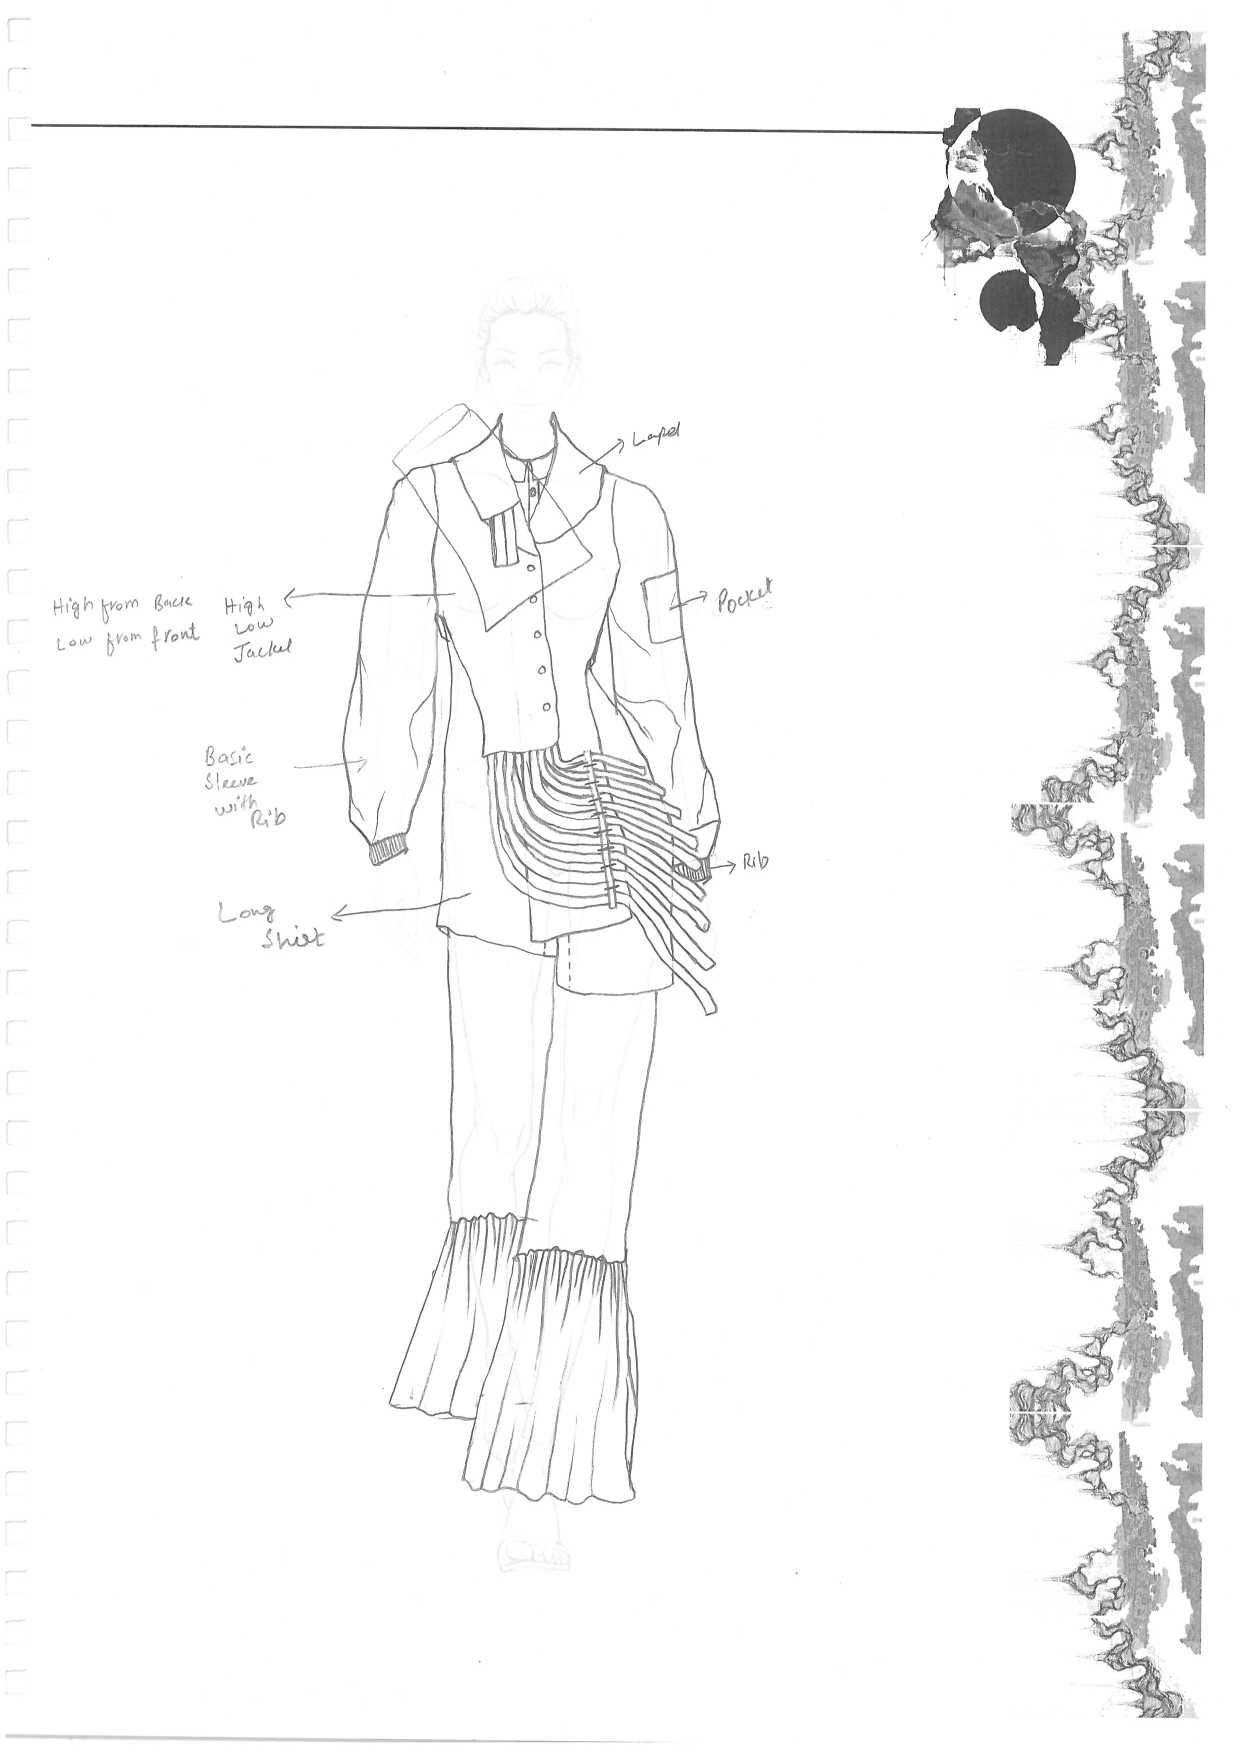 Lapel
Pocket
High from Back
Low from front
High
Low
Jacket
Basic
Sleeve
with
Rib
Rib
Long
Shirt